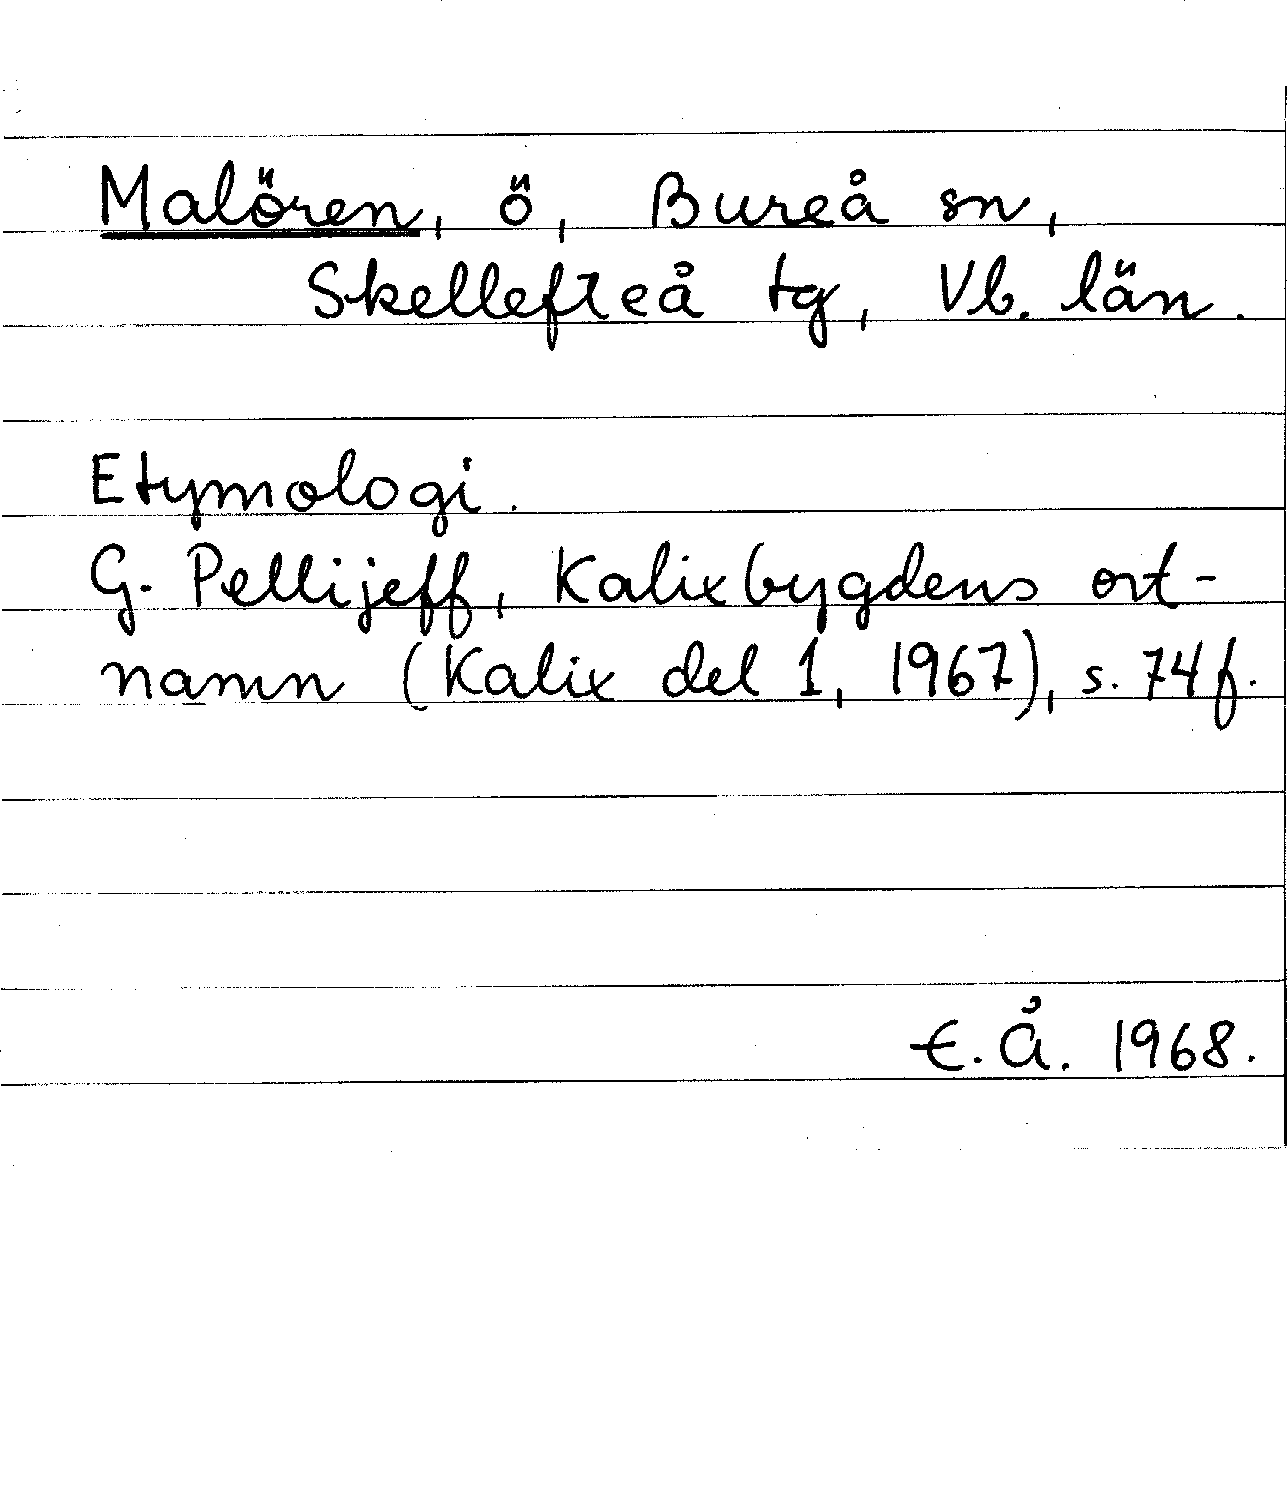 Malören, ö, Bureå sn,
Skellefteå tg, Vb. län.
Etymologi.
G. Pellijeff, Kalixbygdens ort-
namn (Kalix del 1, 1967), s. 74f.
E.Å. 1968.